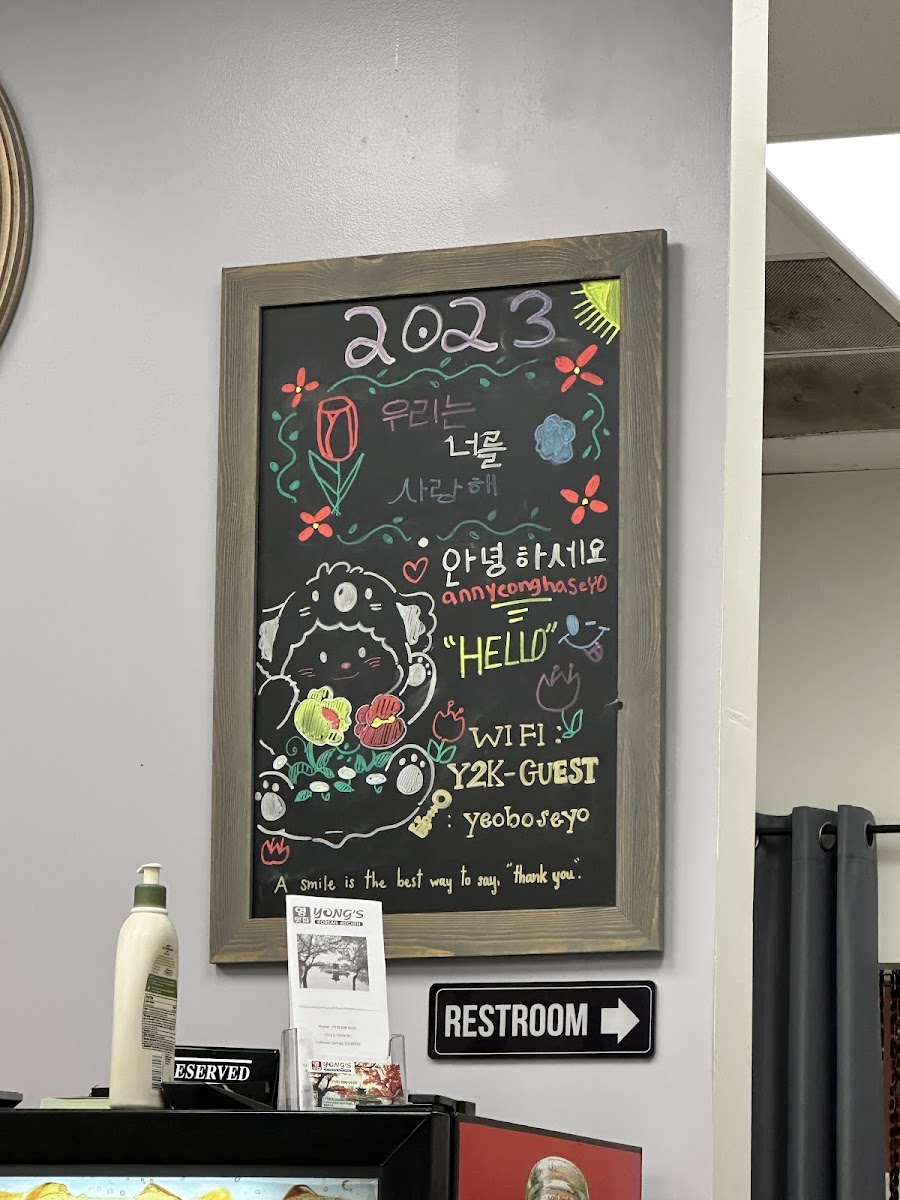 2023
우리는
너를
사랑해
안녕하세요
annyeonghaseyo
"HELLO"
WIFI:
Y2K-GUEST
: yeoboseyo
A smile is the best way to say, "thank you".
영
맛집
YONG'S
KOREAN KITCHEN
RESTROOM
ESERVED
YONG'S